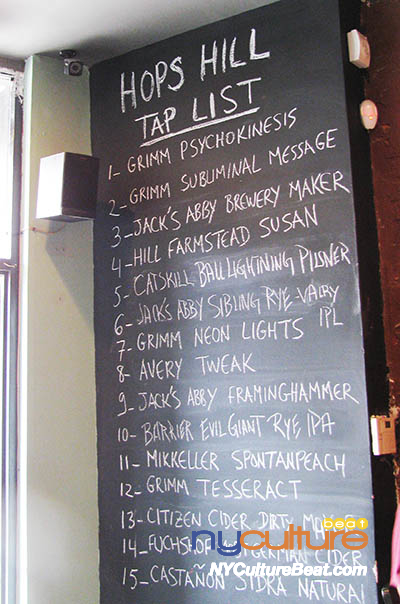 HOPS HILL
TAP LIST
1- GRIMM PSYCHOKINESIS
2- GRIMM SUBLIMINAL MESSAGE
3- JACK'S ABBY BREWERY MAKER
4- HILL FARMSTEAD SUSAN
5- CATSKILL BALL LIGHTNING PILSNER
6- JACK'S ABBY SIBLING RYE-VALRY
IPL
7- GRIMM NEON LIGHTS
8- AVERY TWEAK
9- JACK'S ABBY FRAMINGHAMMER
10- BARRIER EVIL GIANT RYE IPA
11- MIKKELLER SPONTANPEACH
12- GRIMM TESSERACT
13- CITIZEN CIDER DIRTY
14- GERMAN CIDER
15- CASTAÑON SIDRA NATURAL
nyculture beat
NYCultureBeat.com